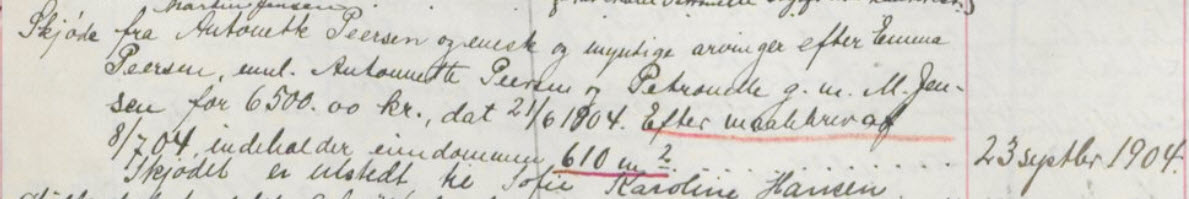 Martin Jensen
Skjøde fra Antonette Peersen og enesk og myntige arvinger efter Emma
Peersen, eml. Antonnette Peersen og Petronelle g. m. M. Jen-
sen for 6500.00 kr., dat 21/6 1904. Efter maalebrev af
8/7 04, indeholder eiendommen 610 m². . . . . . . . . 23 septbr 1904.
Skjødet er utstedt til Sofie Karoline Hansen.